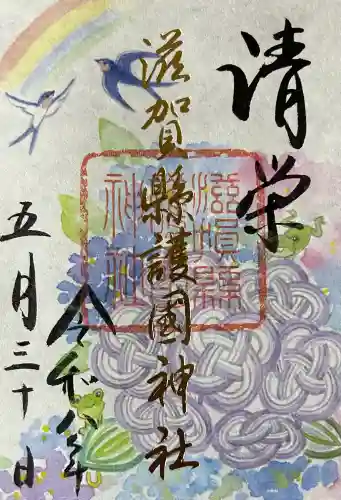 清栄
滋賀縣護國神社
滋賀縣
神社
令和八年
五月三十日